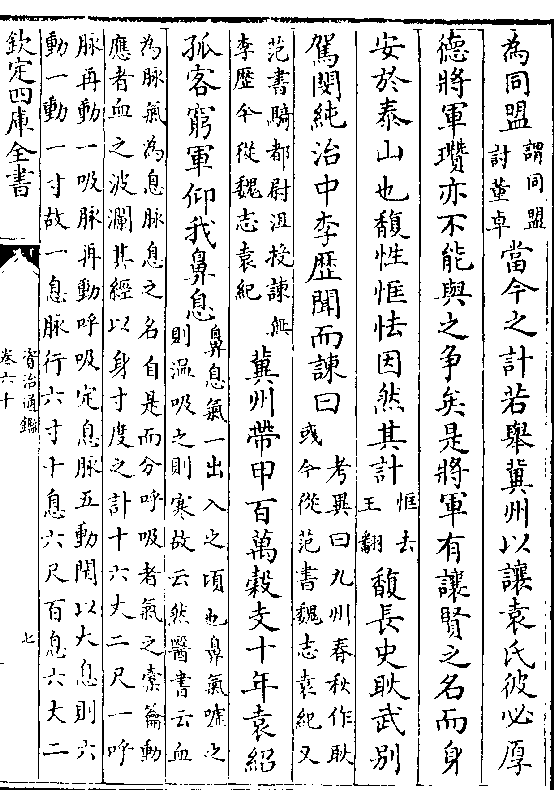 為同盟謂同盟討董卓當今之計若舉冀州以讓袁氏彼必厚
德將軍瓚亦不能與之争矣是將軍有讓賢之名而身
安於泰山也馥性恇怯因然其計恇去王翻馥長史耿武别
駕閔純治中李歴聞而諫曰考異曰九州春秋作耿彧今從范書魏志袁紀又
范書騎都尉沮授諫無李歴今從魏志袁紀冀州帶甲百萬穀支十年袁紹
孤客窮軍仰我鼻息鼻息氣一出入之頃也鼻氣嘘之則温吸之則寒故云然醫書云血
為脉氣為息脉息之名自是而分呼吸者氣之橐籥動
應者血之波瀾其經以身寸度之計十六丈二尺一呼
脉再動一吸脉再動呼吸定息脉五動閏以大息則六
動一動一寸故一息脉行六寸十息六尺百息六丈二
欽定四庫全書
資治通鑑
卷六十
七